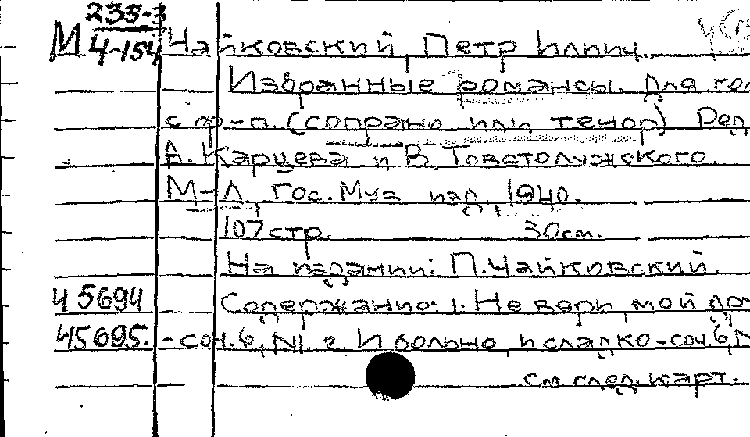 233-3
М 4-154 Чайковский, Петр Ильич.
Избранные романсы. Для гол
с ф-п. (сопрано или тенор) Ред.
А. Карцева и В. Товстолужского.
М-Л, Гос. Муз. изд., 1940.
107 стр. 30 см.
На издании: П. Чайковский.
45694 Содержание: 1. Не верь, мой
45695. - соч. 6, N1. 2. И больно, и сладко - соч. 6, N
см. след. карт.